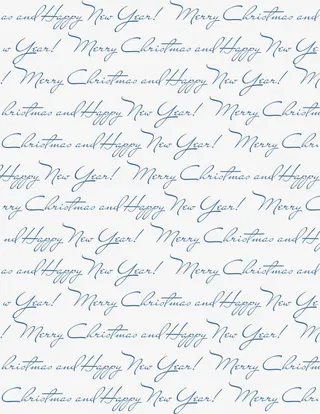 as and Happy New Year! Merry Christmas and
w Year! Merry Christmas and Happy New Ye
! Merry Christmas and Happy New Year! M
hristmas and Happy New Year! Merry Chris
Christmas and Happy New Year! Merry Chr
Happy New Year! Merry Christmas and H
rry Christmas and Happy New Year! Merry
nd Happy New Year! Merry Christmas and H
as and Happy New Year! Merry Christmas and
w Year! Merry Christmas and Happy New Ye
! Merry Christmas and Happy New Year! M
hristmas and Happy New Year! Merry Chris
Christmas and Happy New Year! Merry Chr